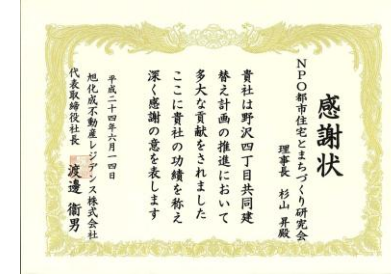 感謝状
NPO都市住宅とまちづくり研究会
理事長 杉山 昇殿
貴社は野沢四丁目共同建
替え計画の推進において
多大な貢献をされました
ここに貴社の功績を称え
深く感謝の意を表します
平成二十四年六月一四日
旭化成不動産レジデンス株式会社
代表取締役社長 渡邊 衞男